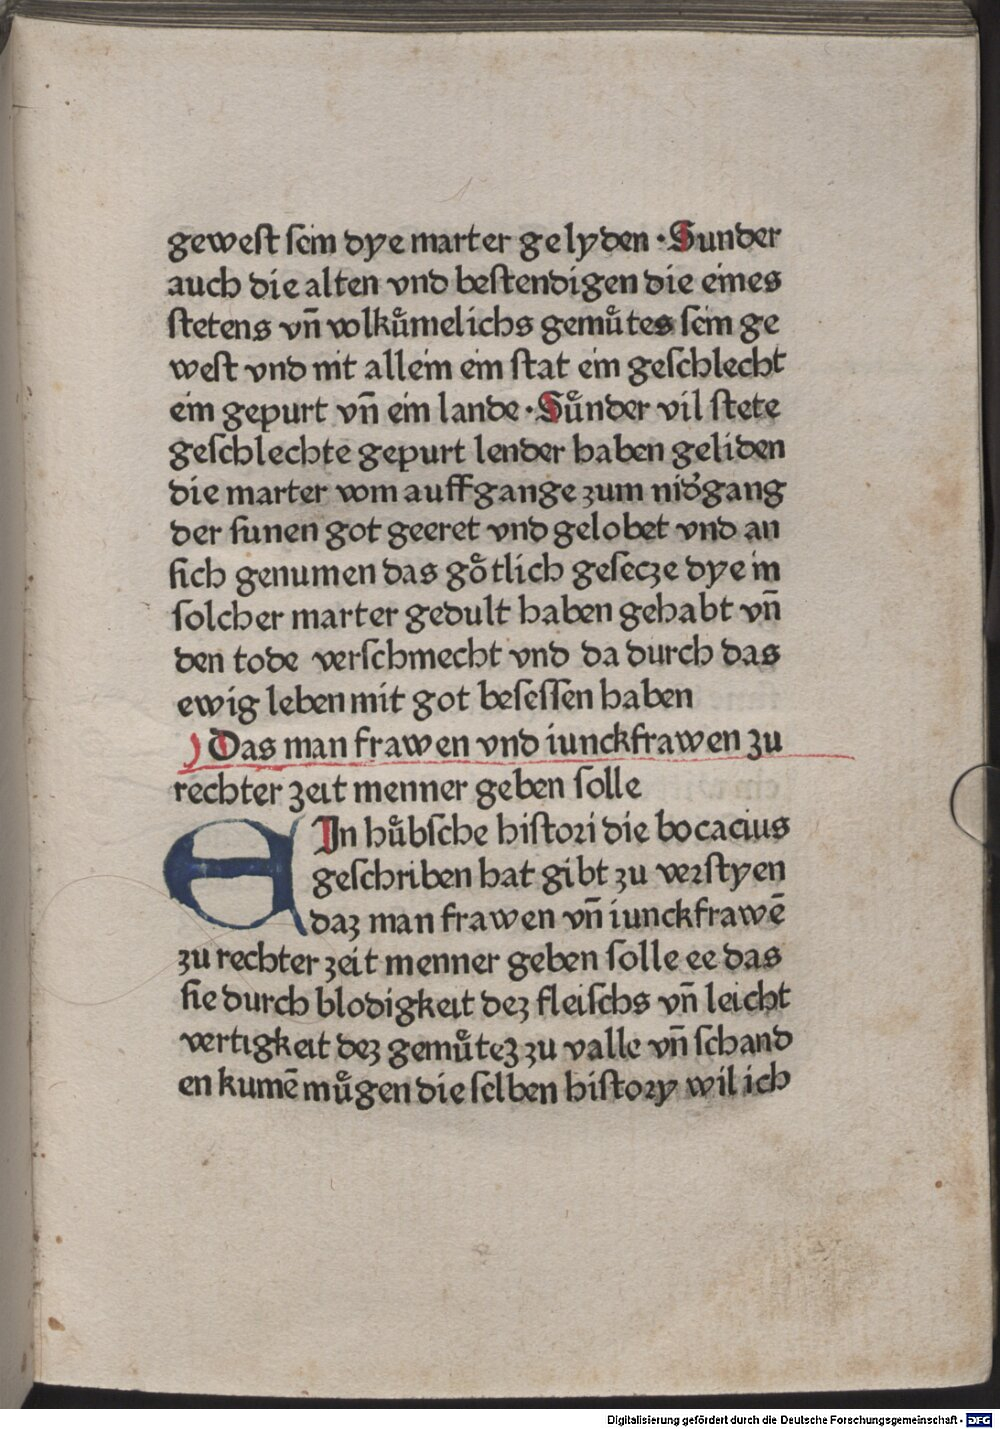 gewest sein dye marter gelyden · Sunder
auch die alten vnd bestendigen die eines
stetens vñ volkůmelichs gemůtes sein ge
west vnd nit allein ein stat ein geschlecht
ein gepurt vñ ein lande · Sůnder vil stete
geschlechte gepurt lender haben geliden
die marter vom auffgange zum nid̕gang
der sunen got geeret vnd gelobet vnd an
sich genumen das gǒtlich gesecze dye in
solcher marter gedult haben gehabt vñ
den tode verschmecht vnd da durch das
ewig leben mit got besessen haben
Das man frawen vnd iunckfrawen zu
rechter zeit menner geben solle
EIn hůbsche histori die bocacius
geschriben hat gibt zu verstyen
daz man frawen vñ iunckfrawē
zu rechter zeit menner geben solle ee das
sie durch blodigkeit dez fleischs vñ leicht
vertigkeit dez gemůtez zu valle vñ schand
en kumē můgen die selben history wil ich
Digitalisierung gefördert durch die Deutsche Forschungsgemeinschaft - DFG